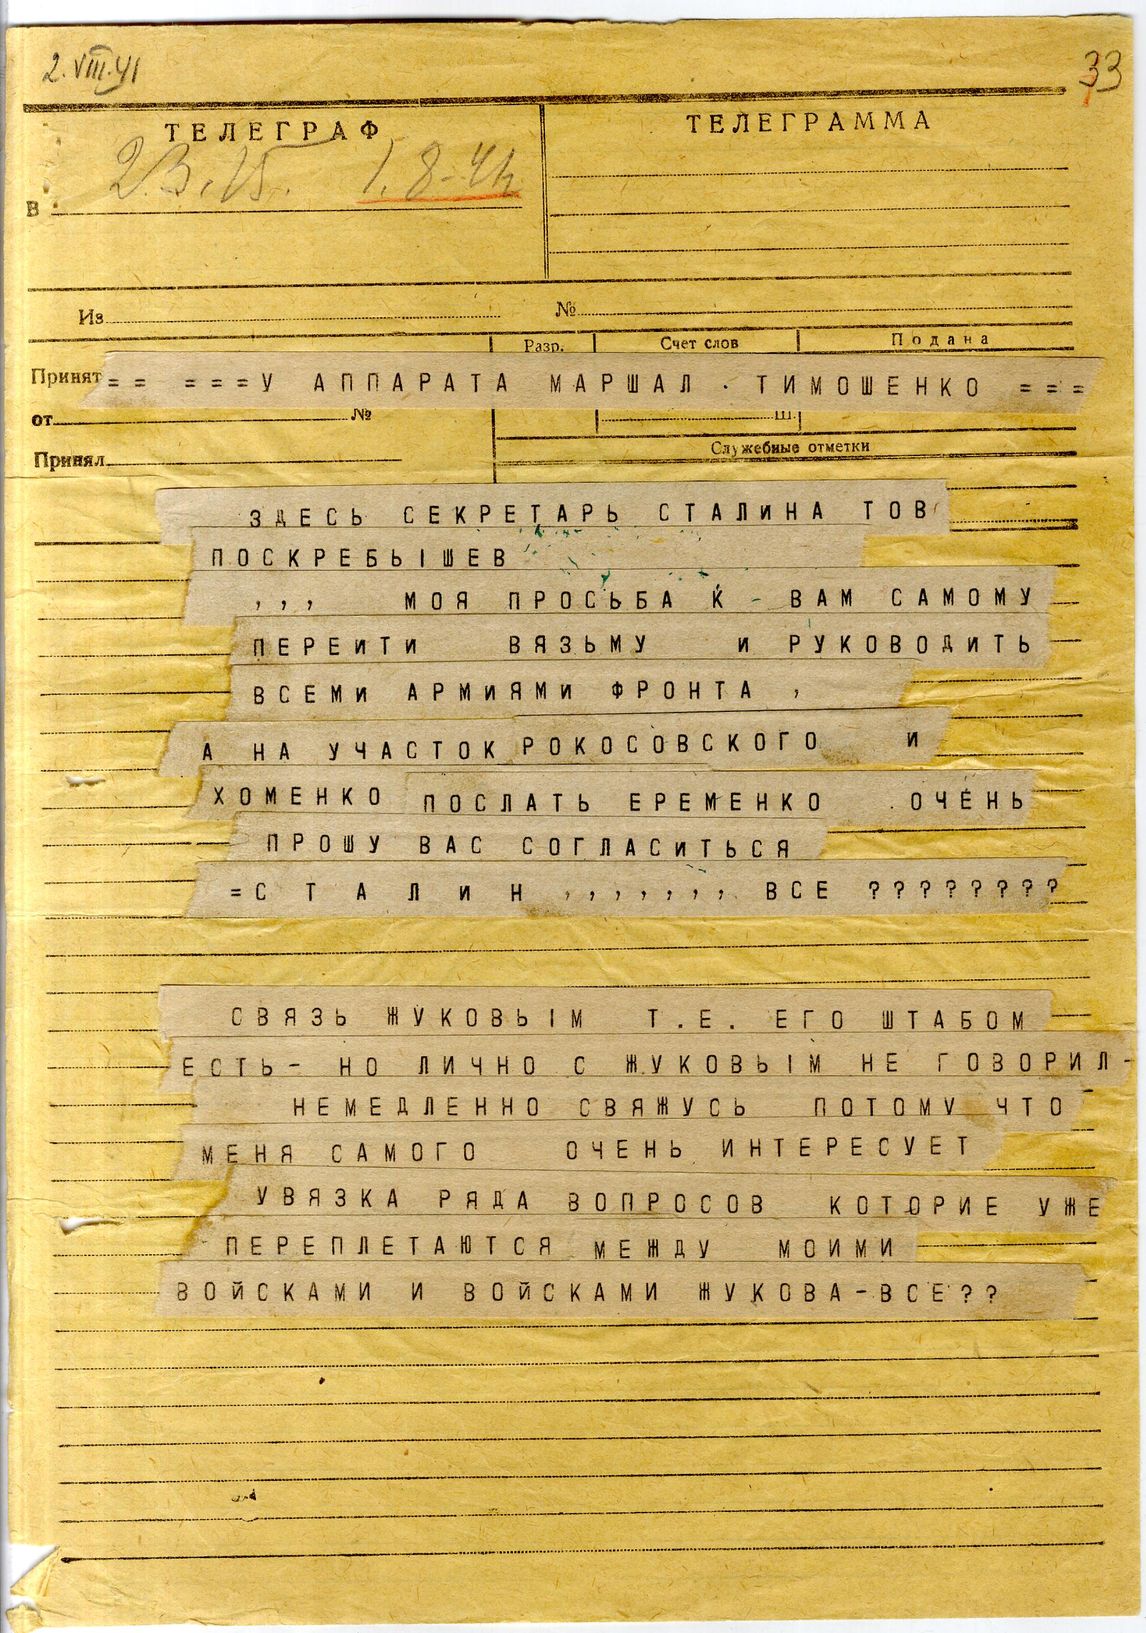 2.VIII.41
33
ТЕЛЕГРАФ
ТЕЛЕГРАММА
23.15. 1.8-41
В
Из
№
Разр.
Счет слов
Подана
Принят
== ===У АППАРАТА МАРШАЛ . ТИМОШЕНКО ===
от
№
ш.
Принял
Служебные отметки
ЗДЕСЬ СЕКРЕТАРЬ СТАЛИНА ТОВ
ПОСКРЕБЫШЕВ
,,, МОЯ ПРОСЬБА К - ВАМ САМОМУ
ПЕРЕИТИ ВЯЗЬМУ И РУКОВОДИТЬ
ВСЕМИ АРМИЯМИ ФРОНТА ,
А НА УЧАСТОК РОКОСОВСКОГО И
ХОМЕНКО ПОСЛАТЬ ЕРЕМЕНКО . ОЧЕНЬ
ПРОШУ ВАС СОГЛАСИТЬСЯ
=С Т А Л И Н ,,,,,,, ВСЕ ????????
СВЯЗЬ ЖУКОВЫМ Т.Е. ЕГО ШТАБОМ
ЕСТЬ- НО ЛИЧНО С ЖУКОВЫМ НЕ ГОВОРИЛ-
НЕМЕДЛЕННО СВЯЖУСЬ ПОТОМУ ЧТО
МЕНЯ САМОГО ОЧЕНЬ ИНТЕРЕСУЕТ
УВЯЗКА РЯДА ВОПРОСОВ КОТОРИЕ УЖЕ
ПЕРЕПЛЕТАЮТСЯ МЕЖДУ МОИМИ
ВОЙСКАМИ И ВОЙСКАМИ ЖУКОВА-ВСЕ??